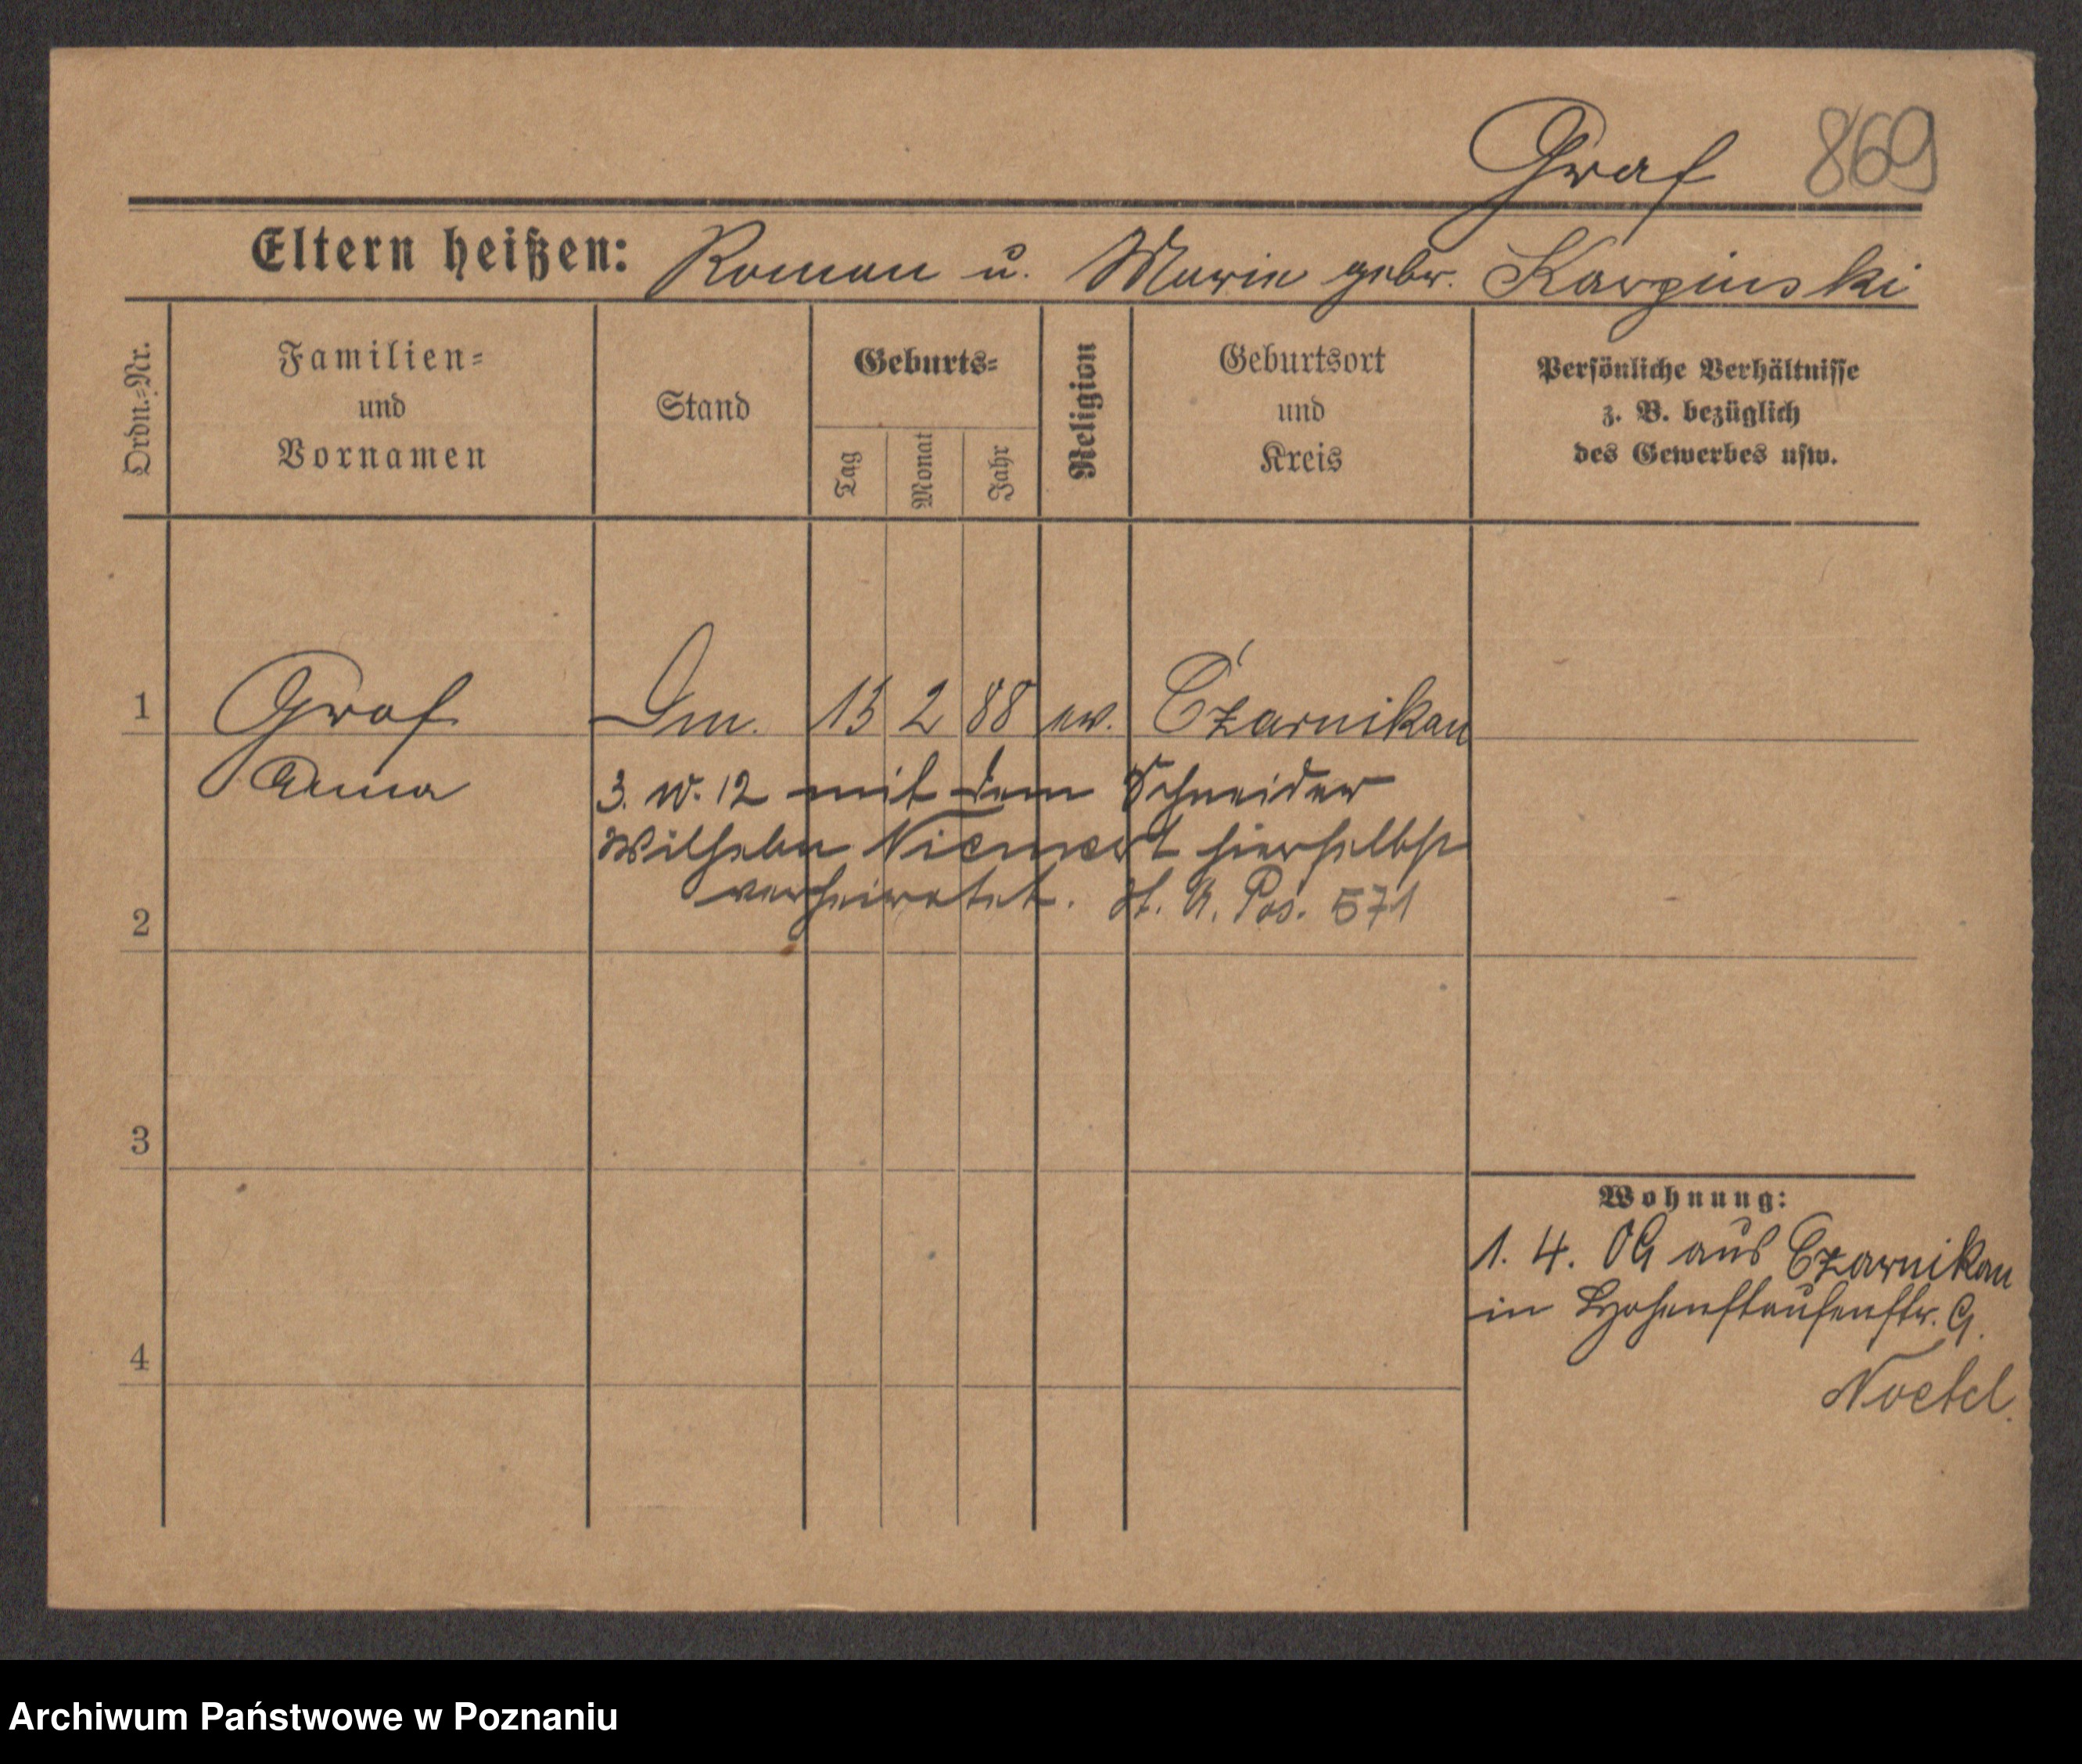 Graf 869
Eltern heißen: Roman u. Marie gebr. Karpinski
Ordn.-Nr.
Familien-
und
Vornamen
Stand
Geburts-
Tag
Monat
Jahr
Religion
Geburtsort
und
Kreis
Persönliche Verhältnisse
z. B. bezüglich
des Gewerbes usw.
1 Graf 15 2 88 ev. Czarnikau
Anna
3. 12 mit dem Schneider
Wilhelm hierselbst
2 verheiratet. H. R. Pos. 571
3
Wohnung:
1. 4. 09 aus Czarnikau
in Hohenstaufenstr. 9.
4 Noetel.
Archiwum Państwowe w Poznaniu